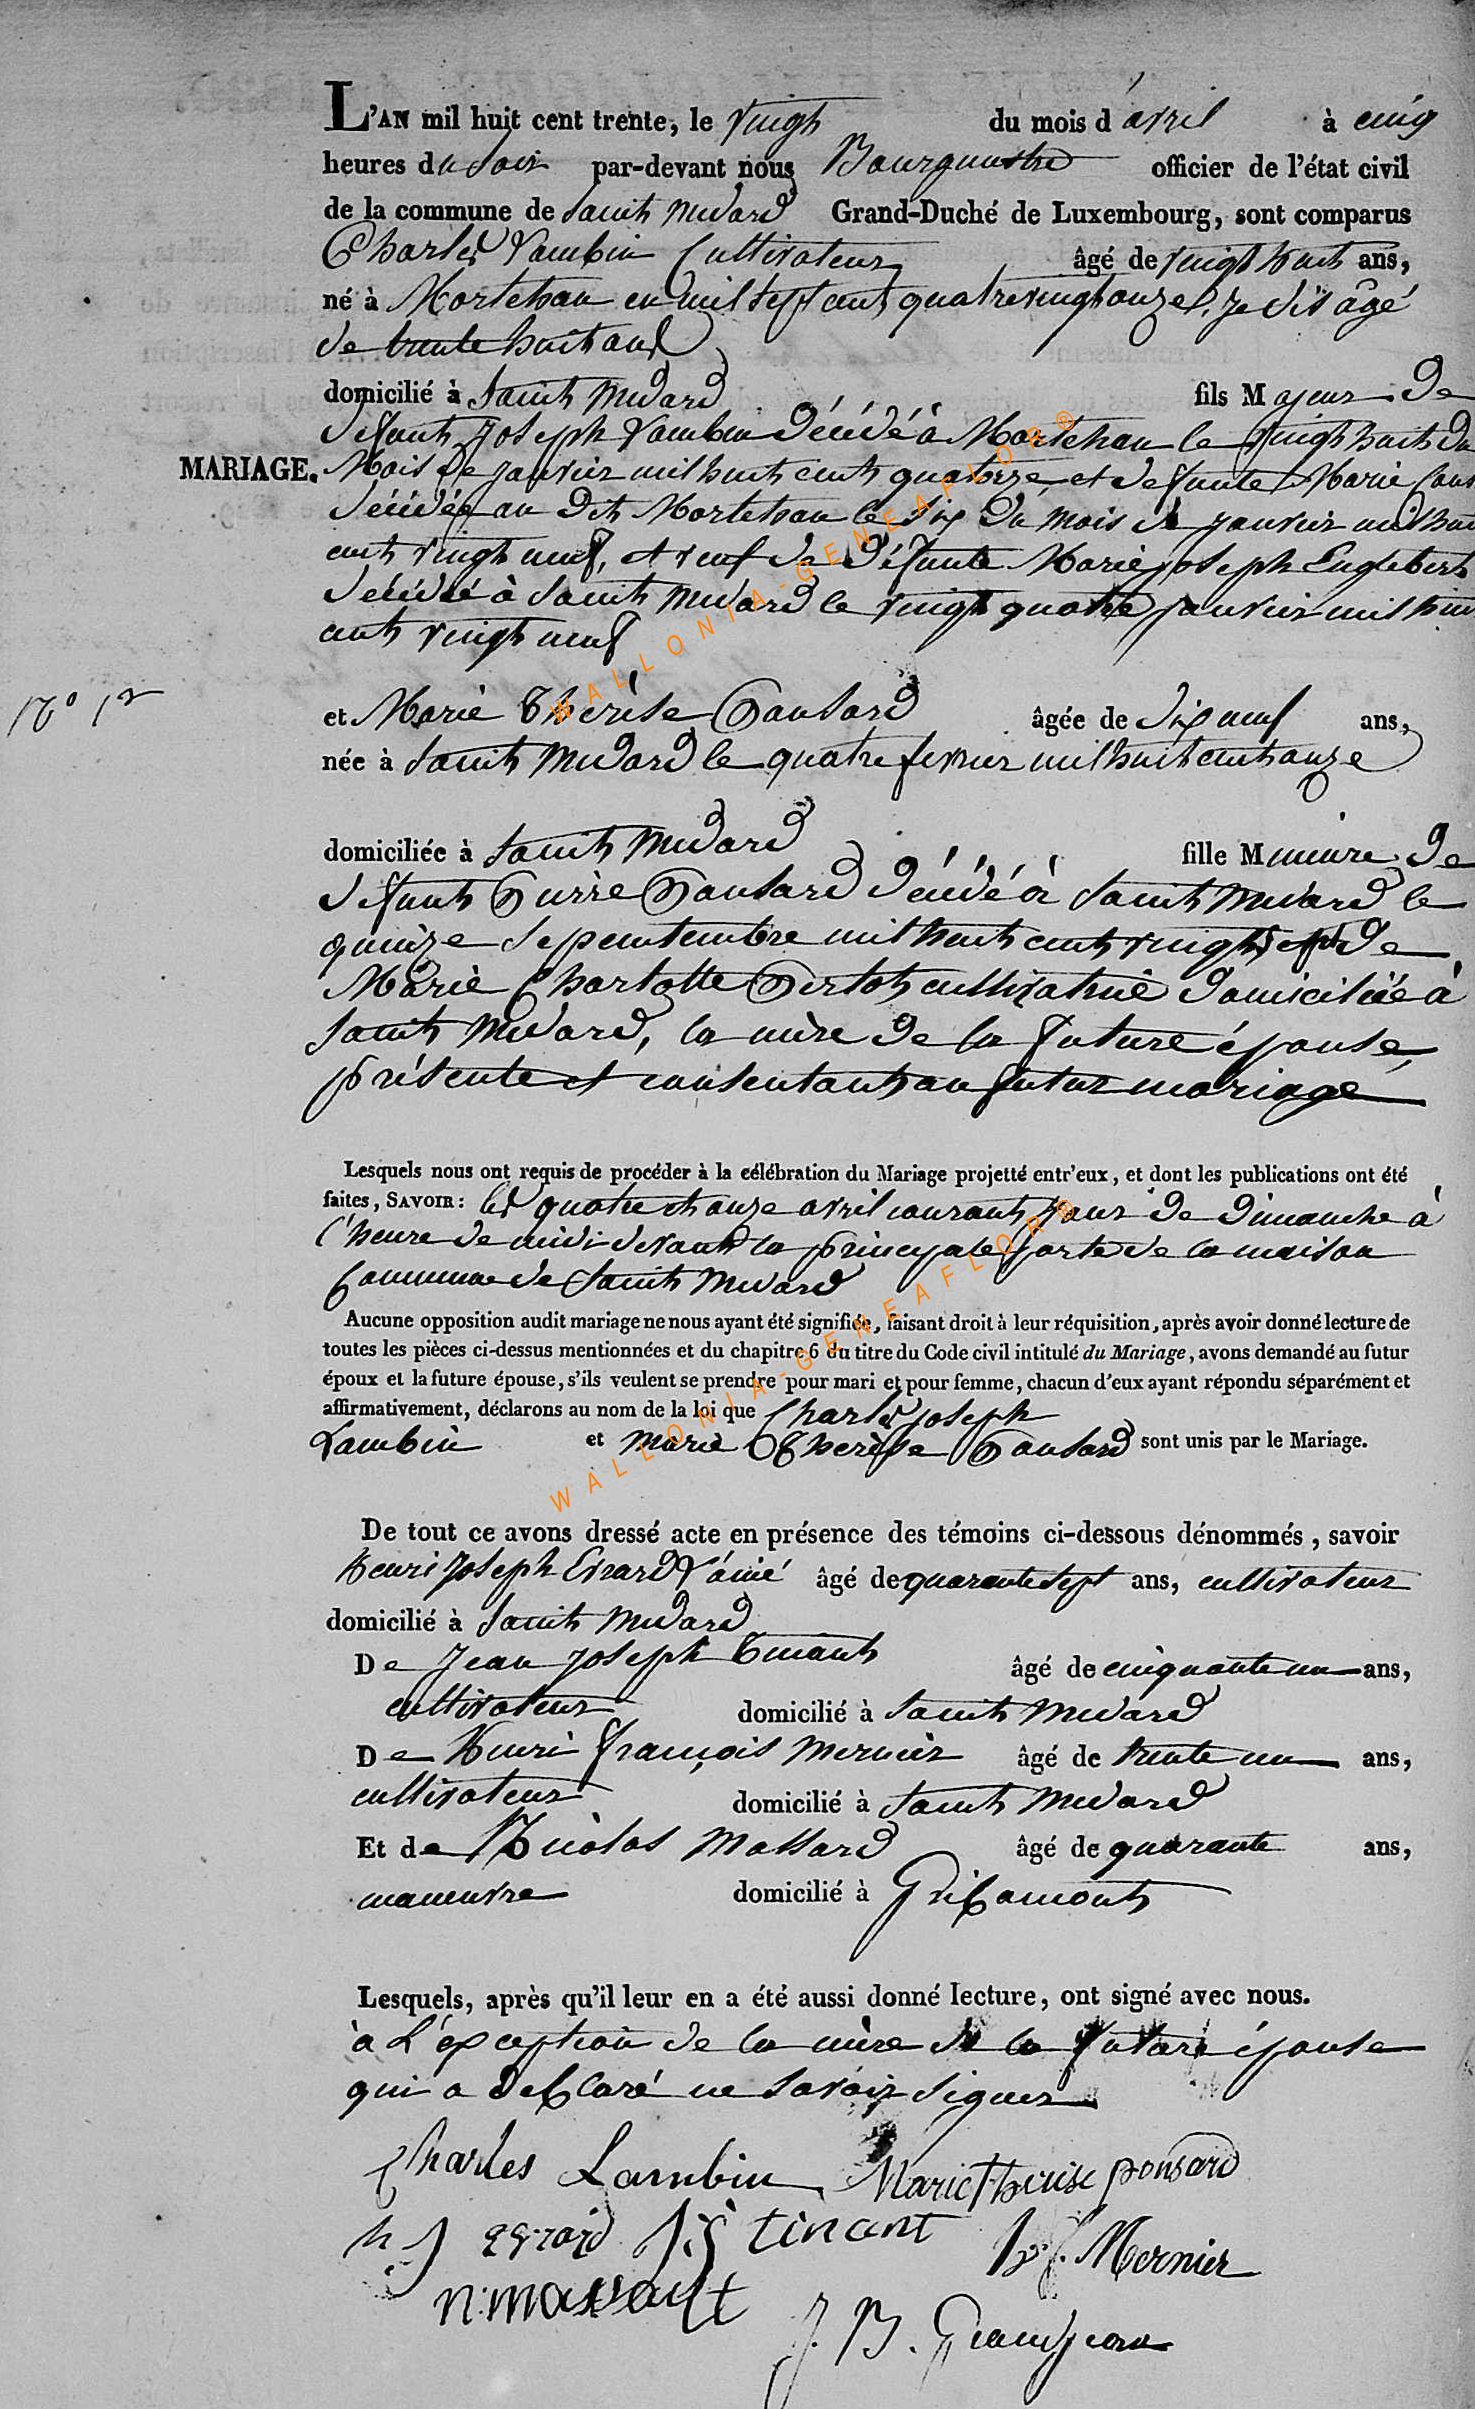 L'AN mil huit cent trente, le vingt du mois d'avril à cinq
heures du soir par-devant nous Bourgmestre officier de l'état civil
de la commune de Saint Médard Grand-Duché de Luxembourg, sont comparus
Charles Lambin Cultivateur âgé de vingt huit ans,
né à Mortehan en mil sept cent quatre vingt onze je dis âgé
de trente huit ans
domicilié à Saint Médard fils Majeur De
défunt Joseph Lambin décédé à Mortehan le vingt huit du
MARIAGE. Mois de janvier mil huit cent quatorze, et de defunte Marie
décédée au dit Mortehan le six du mois de janvier mil huit
cent vingt neuf, et veuf de Défunte Marie joseph Englebert
décédée à Saint Médard le vingt quatre janvier mil huit
cent vingt neuf
N° 12
et Marie Thérèse Ponsard âgée de dix neuf ans,
née à Saint Médard le quatre fevrier mil huit cent onze
domiciliée à Saint Médard fille Mineure De
défunt Pierre Ponsard décédé à Saint Médard le
quinze mil huit cent vingt et de
Marie Charlotte Pertot cultivatrice domiciliée à
Saint Médard, la mère de la future épouse,
présente et consentant au futur mariage
Lesquels nous ont requis de procéder à la célébration du Mariage projetté entr'eux, et dont les publications ont été
faites, SAVOIR : les quatre et onze avril courant jour de Dimanche à
l'heure de midi devant la principale porte de la maison
Commune de Saint Médard
Aucune opposition audit mariage ne nous ayant été signifiée, faisant droit à leur réquisition, après avoir donné lecture de
toutes les pièces ci-dessus mentionnées et du chapitre 6 du titre du Code civil intitulé du Mariage, avons demandé au futur
époux et la future épouse, s'ils veulent se prendre pour mari et pour femme, chacun d'eux ayant répondu séparément et
affirmativement, déclarons au nom de la loi que Charles joseph
Lambin et Marie Thérèse Ponsard sont unis par le Mariage.
De tout ce avons dressé acte en présence des témoins ci-dessous dénommés, savoir
Henri Joseph Evrard l'ainé âgé de quarante sept ans, cultivateur
domicilié à Saint Médard
De Jean Joseph Tinant âgé de cinquante un ans,
cultivateur domicilié à Saint Médard
De Henri François Mernier âgé de trente un ans,
cultivateur domicilié à Saint Médard
Et de Nicolas Massard âgé de quarante ans,
manœuvre domicilié à Gribomont
Lesquels, après qu'il leur en a été aussi donné lecture, ont signé avec nous.
à L'exception de la mère de la future épouse
qui a déclaré ne savoir signer
Charles Lambin Marie Therese ponsard
h j evrard j j tinant h f. Mernier
n: massart
J. B. Grandjean
WALLONIA-GENEAFLOR®
WALLONIA-GENEAFLOR®